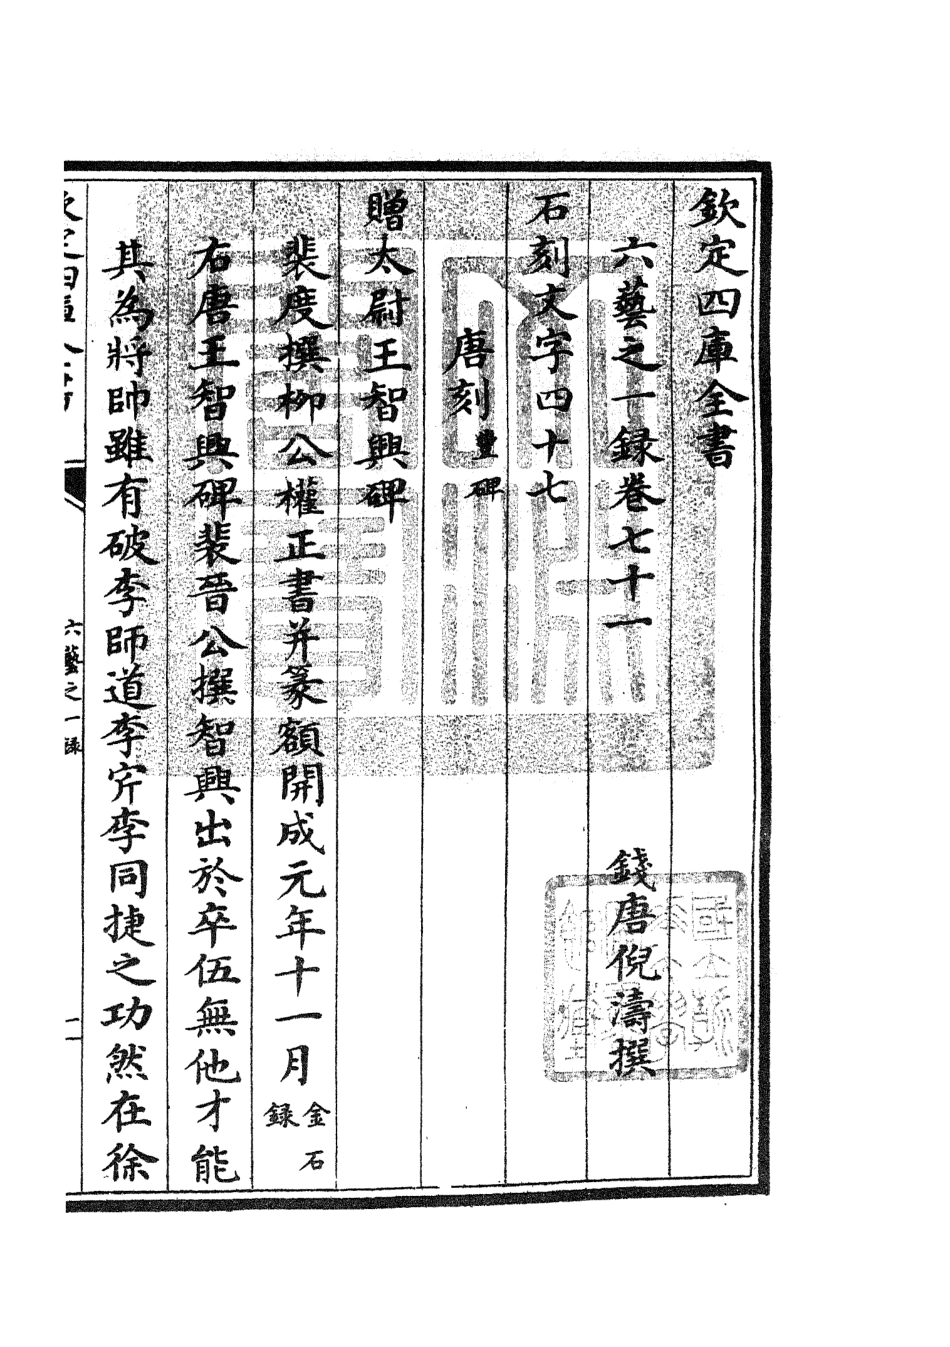 欽定四庫全書
六藝之一録卷七十一
錢唐倪濤撰
石刻文字四十七
唐刻豐碑
贈太尉王智興碑
裴度撰柳公權正書并篆額開成元年十一月金石録
右唐王智興碑裴晉公撰智興出於卒伍無他才能
其為將帥雖有破李師道李㝏李同捷之功然在徐
六藝之一録
一